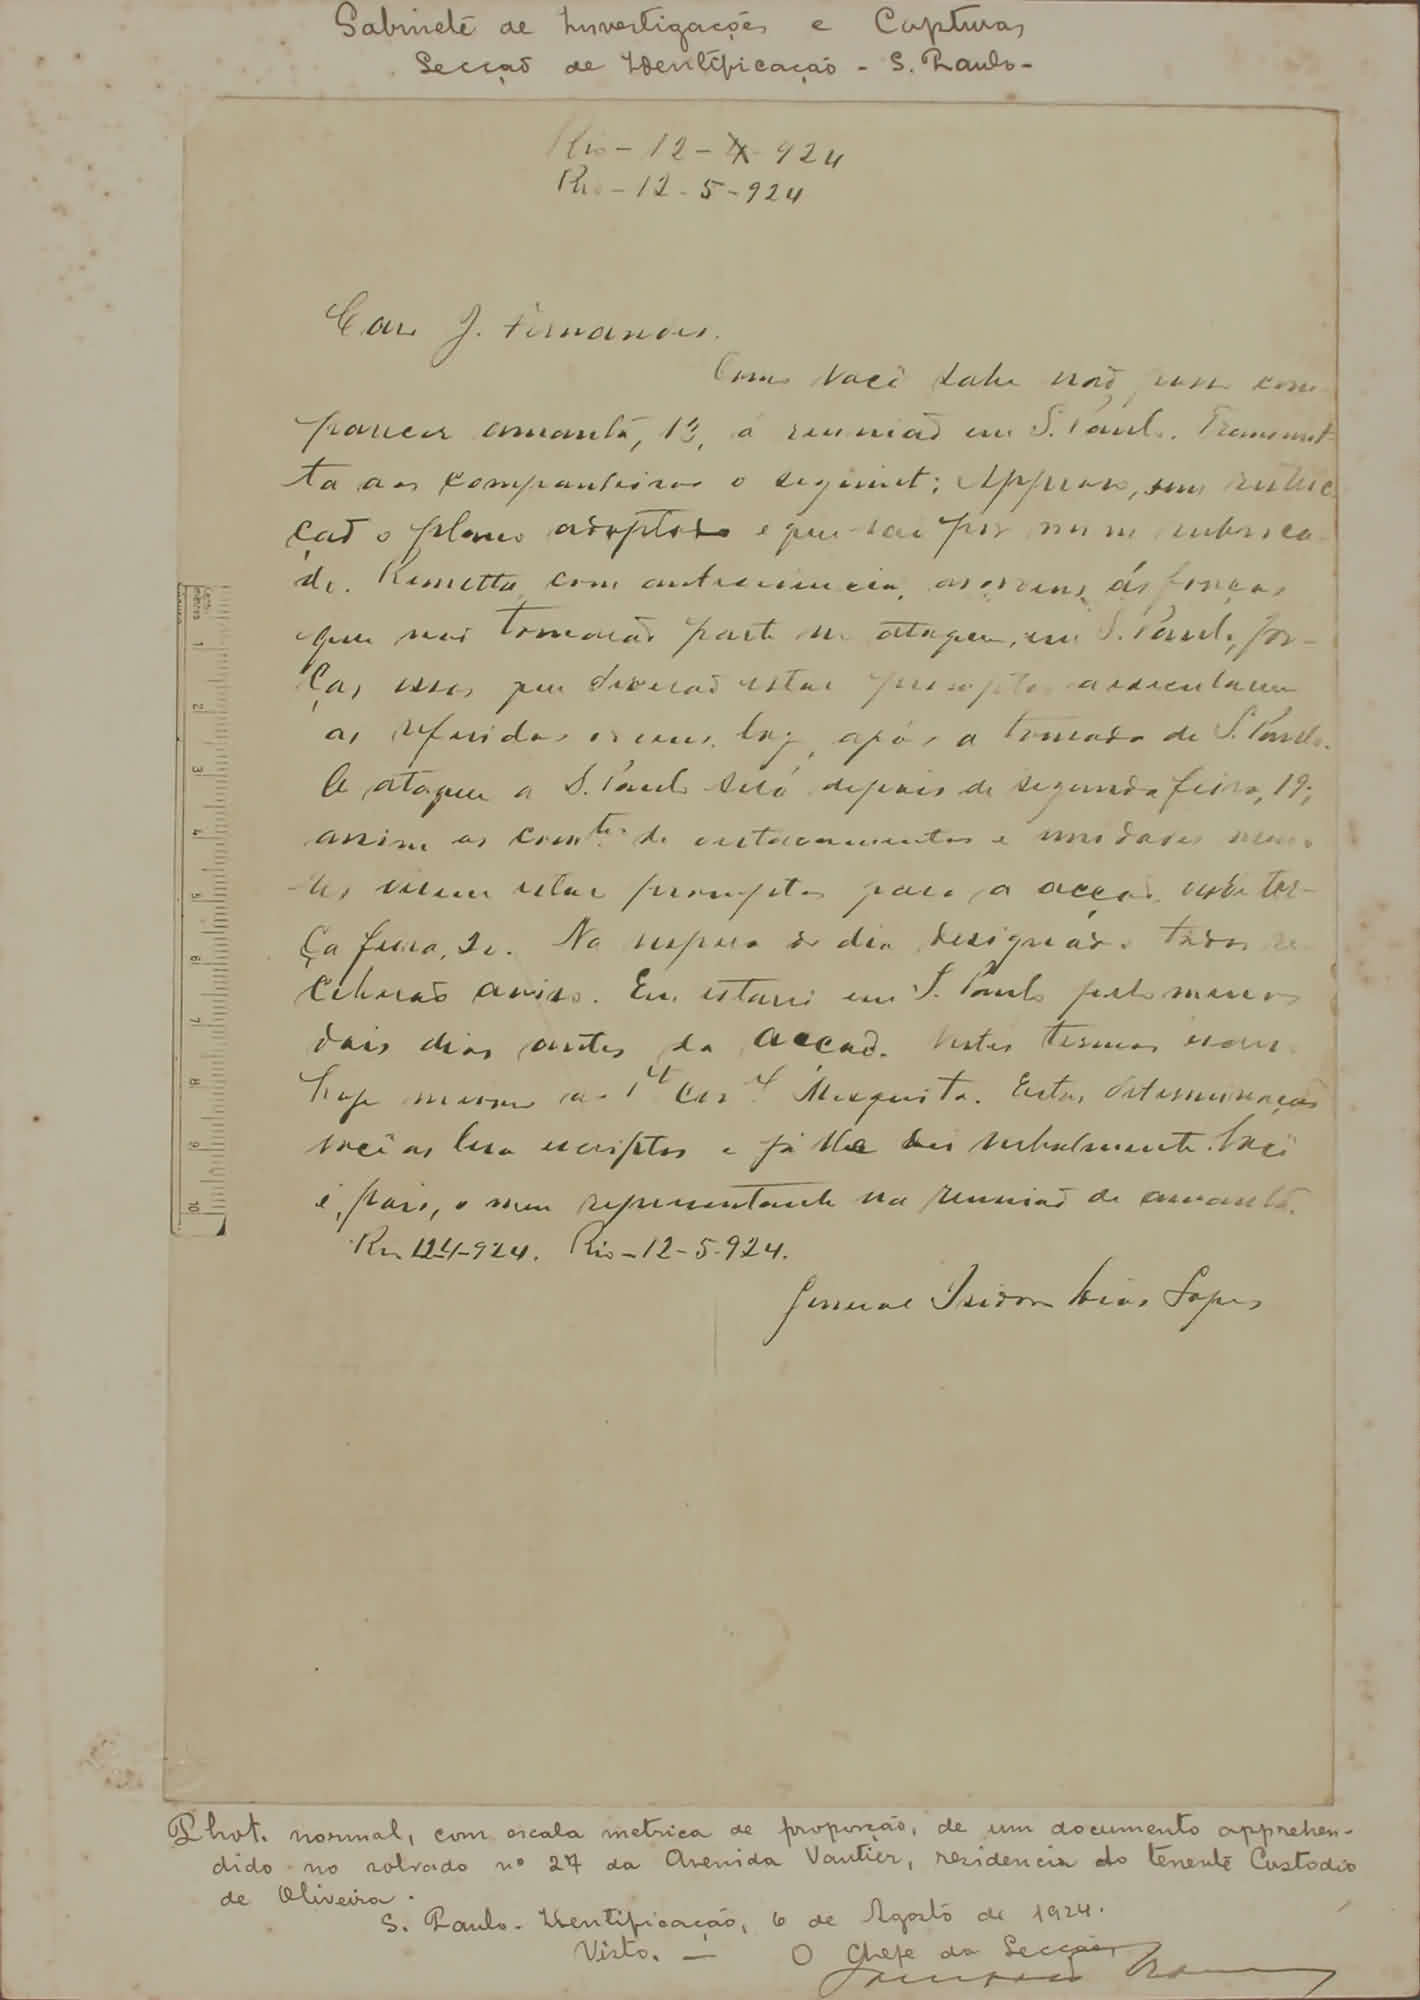 Gabinete de Investigações e Capturas
Secção de Identificação - S. Paulo -
Rio - 12 - 4 - 924
Rio - 12 - 5 - 924
Caro J. Fernandes.
Como você sabe não posso com-
parecer amanhã, 13, á reunião em S. Paulo. Transmit-
ta aos companheiros o seguinte: Approvo, sem restric-
ção o plano adoptado e que vai por mim rubrica-
do. Remetta com antecedencia, as ordens ás forças
que não tomarão parte no ataque, em S. Paulo, for-
ças essas que deverão estar promptas a executarem
as referidas ordens, logo, após a tomada de S. Paulo.
O ataque a S. Paulo será depois de segunda feira, 19;
assim os comtes de destacamentos e unidades
devem estar promptos para a acção desde ter-
ça feira, 20. Na vespera do dia designado todos re-
ceberão aviso. Eu estarei em S. Paulo pelo menos
dois dias antes da acção. Nestes termos
hoje mesmo ao Mesquita. Estas determinações
você as leva escriptas e já lhe dei verbalmente. Você
é, pois, o meu representante na reunião de amanhã.
Rio 12-4-924. Rio - 12 - 5 - 924.
General Isidoro Dias Lopes
1
2
3
4
5
6
7
8
9
10
Phot. normal, com escala metrica de proporção, de um documento apprehen-
dido no sobrado nº 27 da Avenida Vautier, residencia do tenente Custodio
de Oliveira.
S. Paulo - Identificação, 6 de Agosto de 1924.
Visto. - O Chefe da Secção,